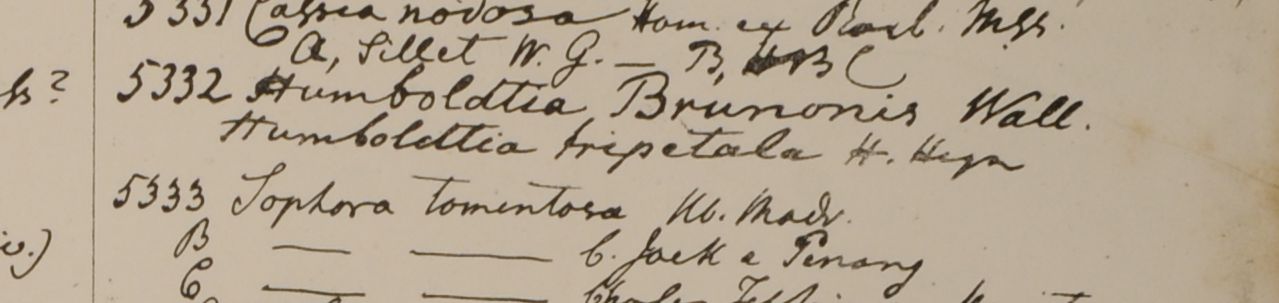 5331 Cassia nodosa Ham. ex Roxb. Mss.
A, Sillet W. G. — B, HBC
h?
5332 Humboldtia Brunonis Wall.
Humboldttia tripetala H. Heyn
5333 Sophora tomentosa Hb. Madr.
B — — C. Jack e Penang
C — —